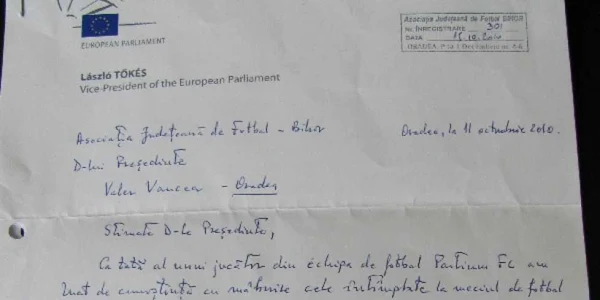 EUROPEAN PARLIAMENT
Asociaţia Judeţeană de Fotbal BIHOR
Nr. ÎNREGISTRARE 301
DATA 15.10.2010
ORADEA, P-ţa 1 Decembrie nr.
László TŐKÉS
Vice-President of the European Parliament
Asociaţia Judeţeană de Fotbal - Bihor
Oradea, la 11 octombrie 2010.
D-lui Preşedinte
Valer Vancea - Oradea
Stimate D-le Preşedinte,
Ca tată al unui jucător din echipa de fotbal Partium FC am
luat de cunoştinţă cu mâhnire cele întâmplate la meciul de fotbal